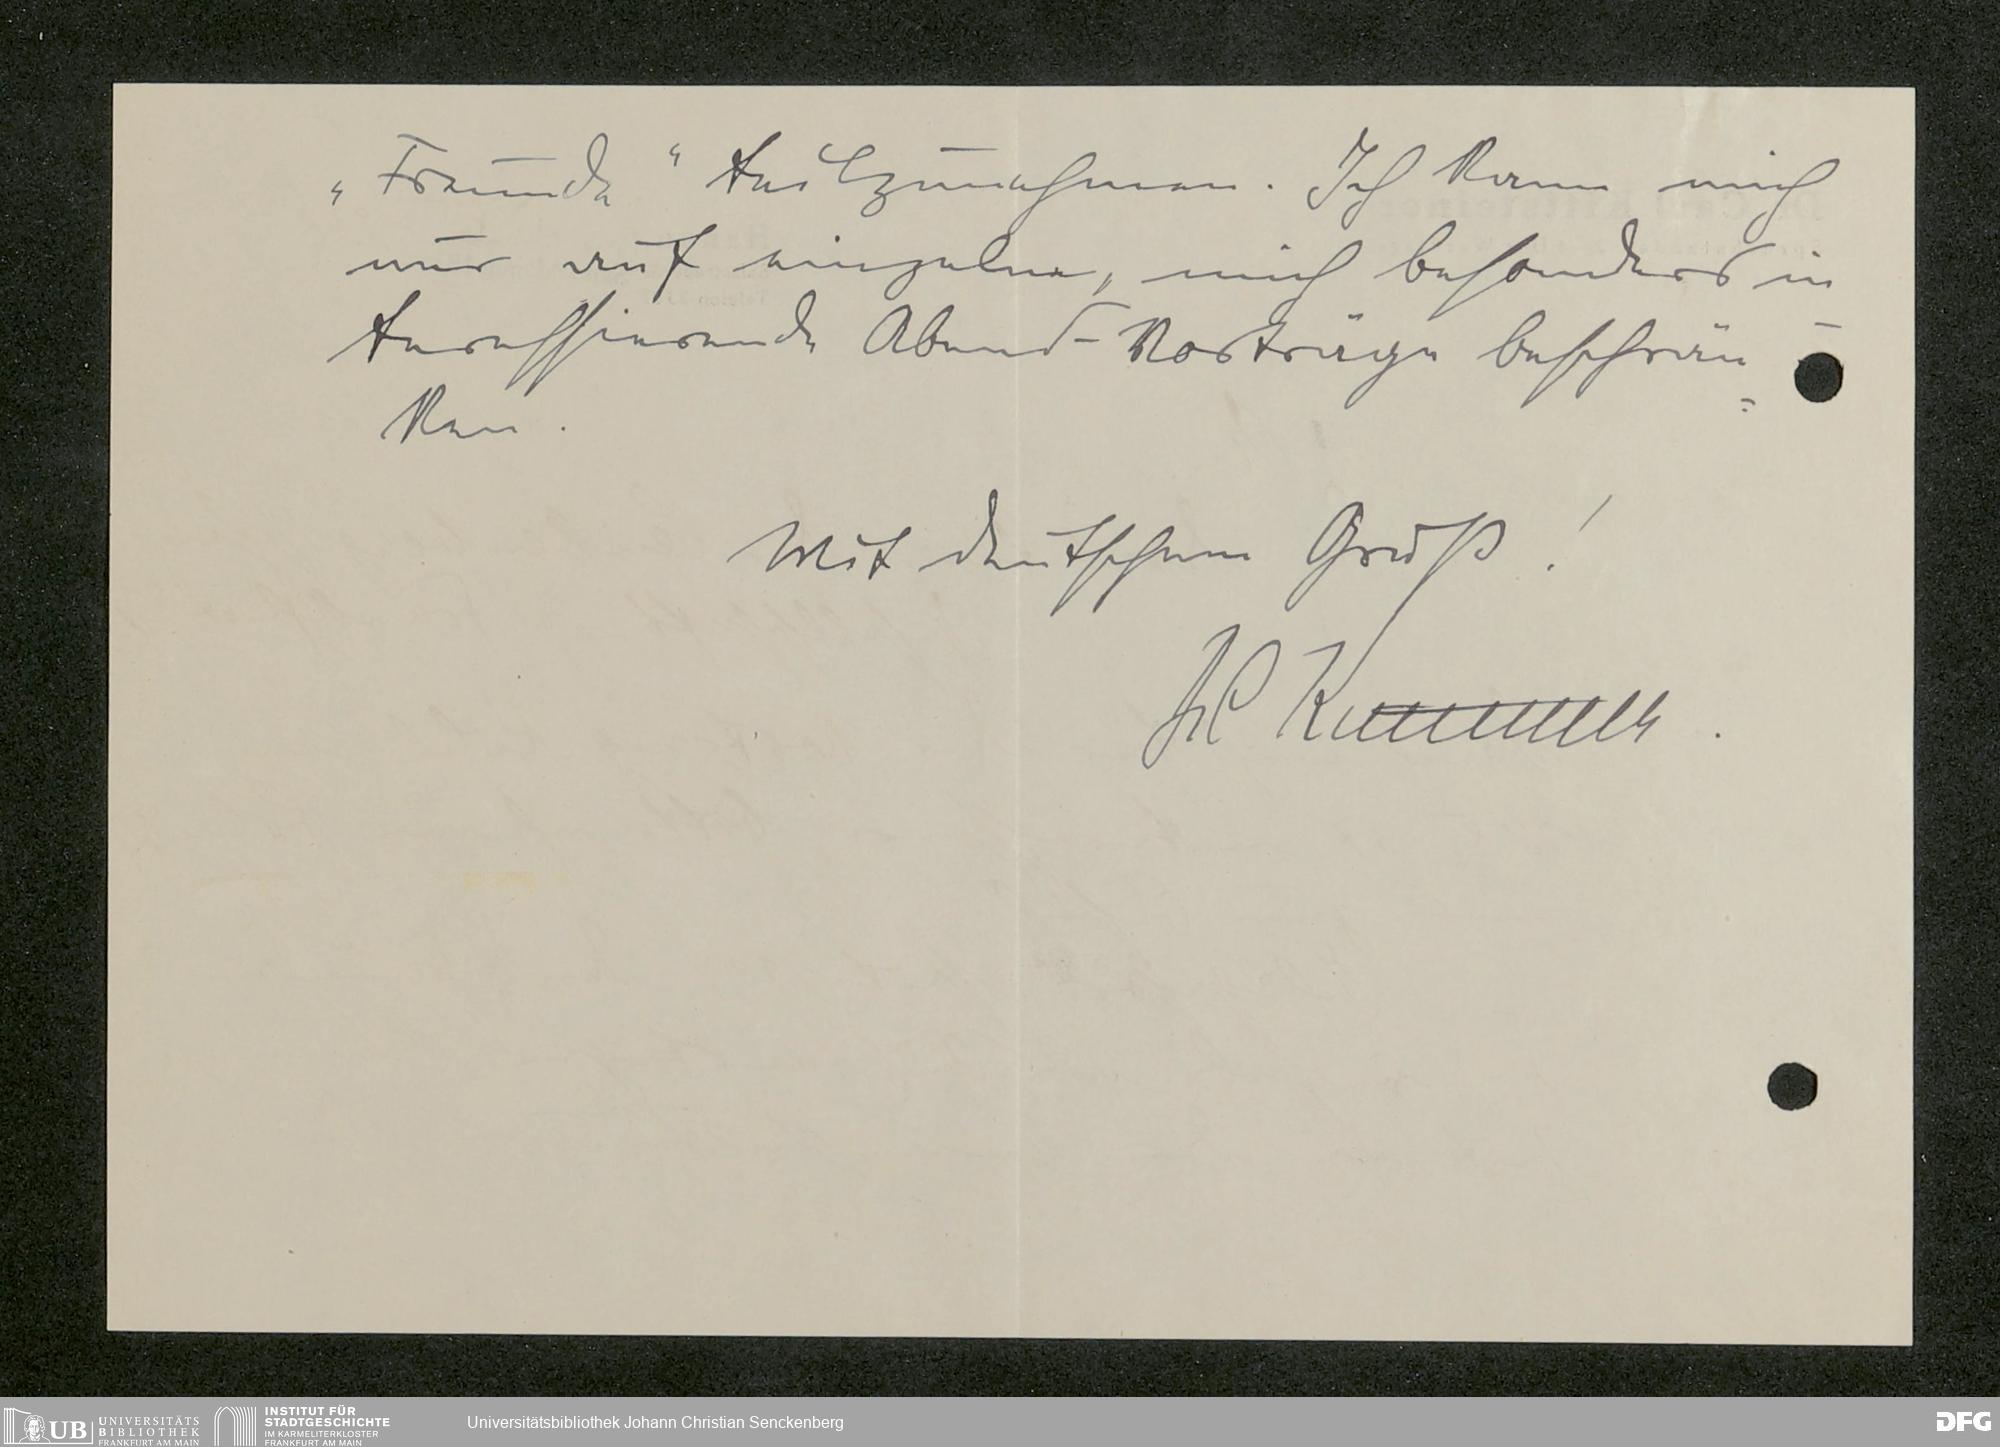 „Freunde“ teilzunehmen. Ich kann mich
nur auf einzelne, mich besonders in
teressierende Abend-Vorträge beschrän
ken.
Mit deutschem Gruß!
UB UNIVERSITÄTS
BIBLIOTHEK
FRANKFURT AM MAIN
INSTITUT FÜR
STADTGESCHICHTE
IM KARMELITERKLOSTER
FRANKFURT AM MAIN
Universitätsbibliothek Johann Christian Senckenberg
DFG